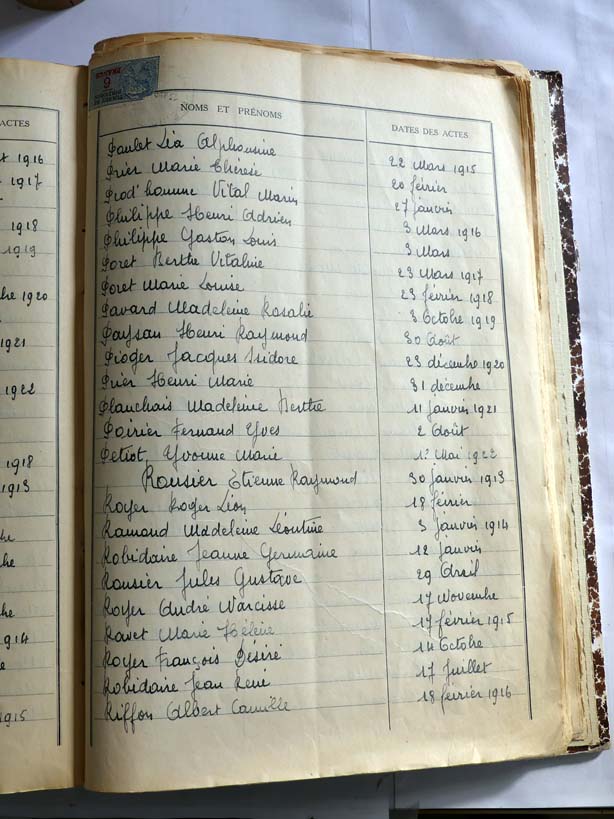 ACTES
1916
1917
1918
1919
1920
1921
1922
1918
1913
1914
1915
9
NOMS ET PRÉNOMS DATES DES ACTES
Paulet Léa Alphonsine 22 Mars 1915
Prier Marie Thérèse 20 février
Prod'homme Vital Marin 27 janvier
Philippe Henri Adrien 3 Mars 1916
Philippe Gaston Louis 3 Mars
Poret Berthe Vitaline 23 Mars 1917
Poret Marie Louise 23 février 1918
Pavard Madeleine Rosalie 3 Octobre 1919
Paysan Henri Raymond 30 Août
Pioger Jacques Isidore 23 décembre 1920
Prier Henri Marie 31 décembre
Planchais Madeleine Berthe 11 janvier 1921
Poirier Fernand Yves 2 Août
Petiot Yvonne Marie 1er Mai 1922
Rousier Etienne Raymond 30 janvier 1913
Royer Roger Léon 18 février
Ramond Madeleine Léontine 3 janvier 1914
Robidaire Jeanne Germaine 12 janvier
Rousier Jules Gustave 29 Avril
Royer André Narcisse 17 Novembre
Ravet Marie Hélène 17 février 1915
Royer François Désiré 14 Octobre
Robidaire Jean René 17 juillet
Riffon Albert Camille 18 février 1916